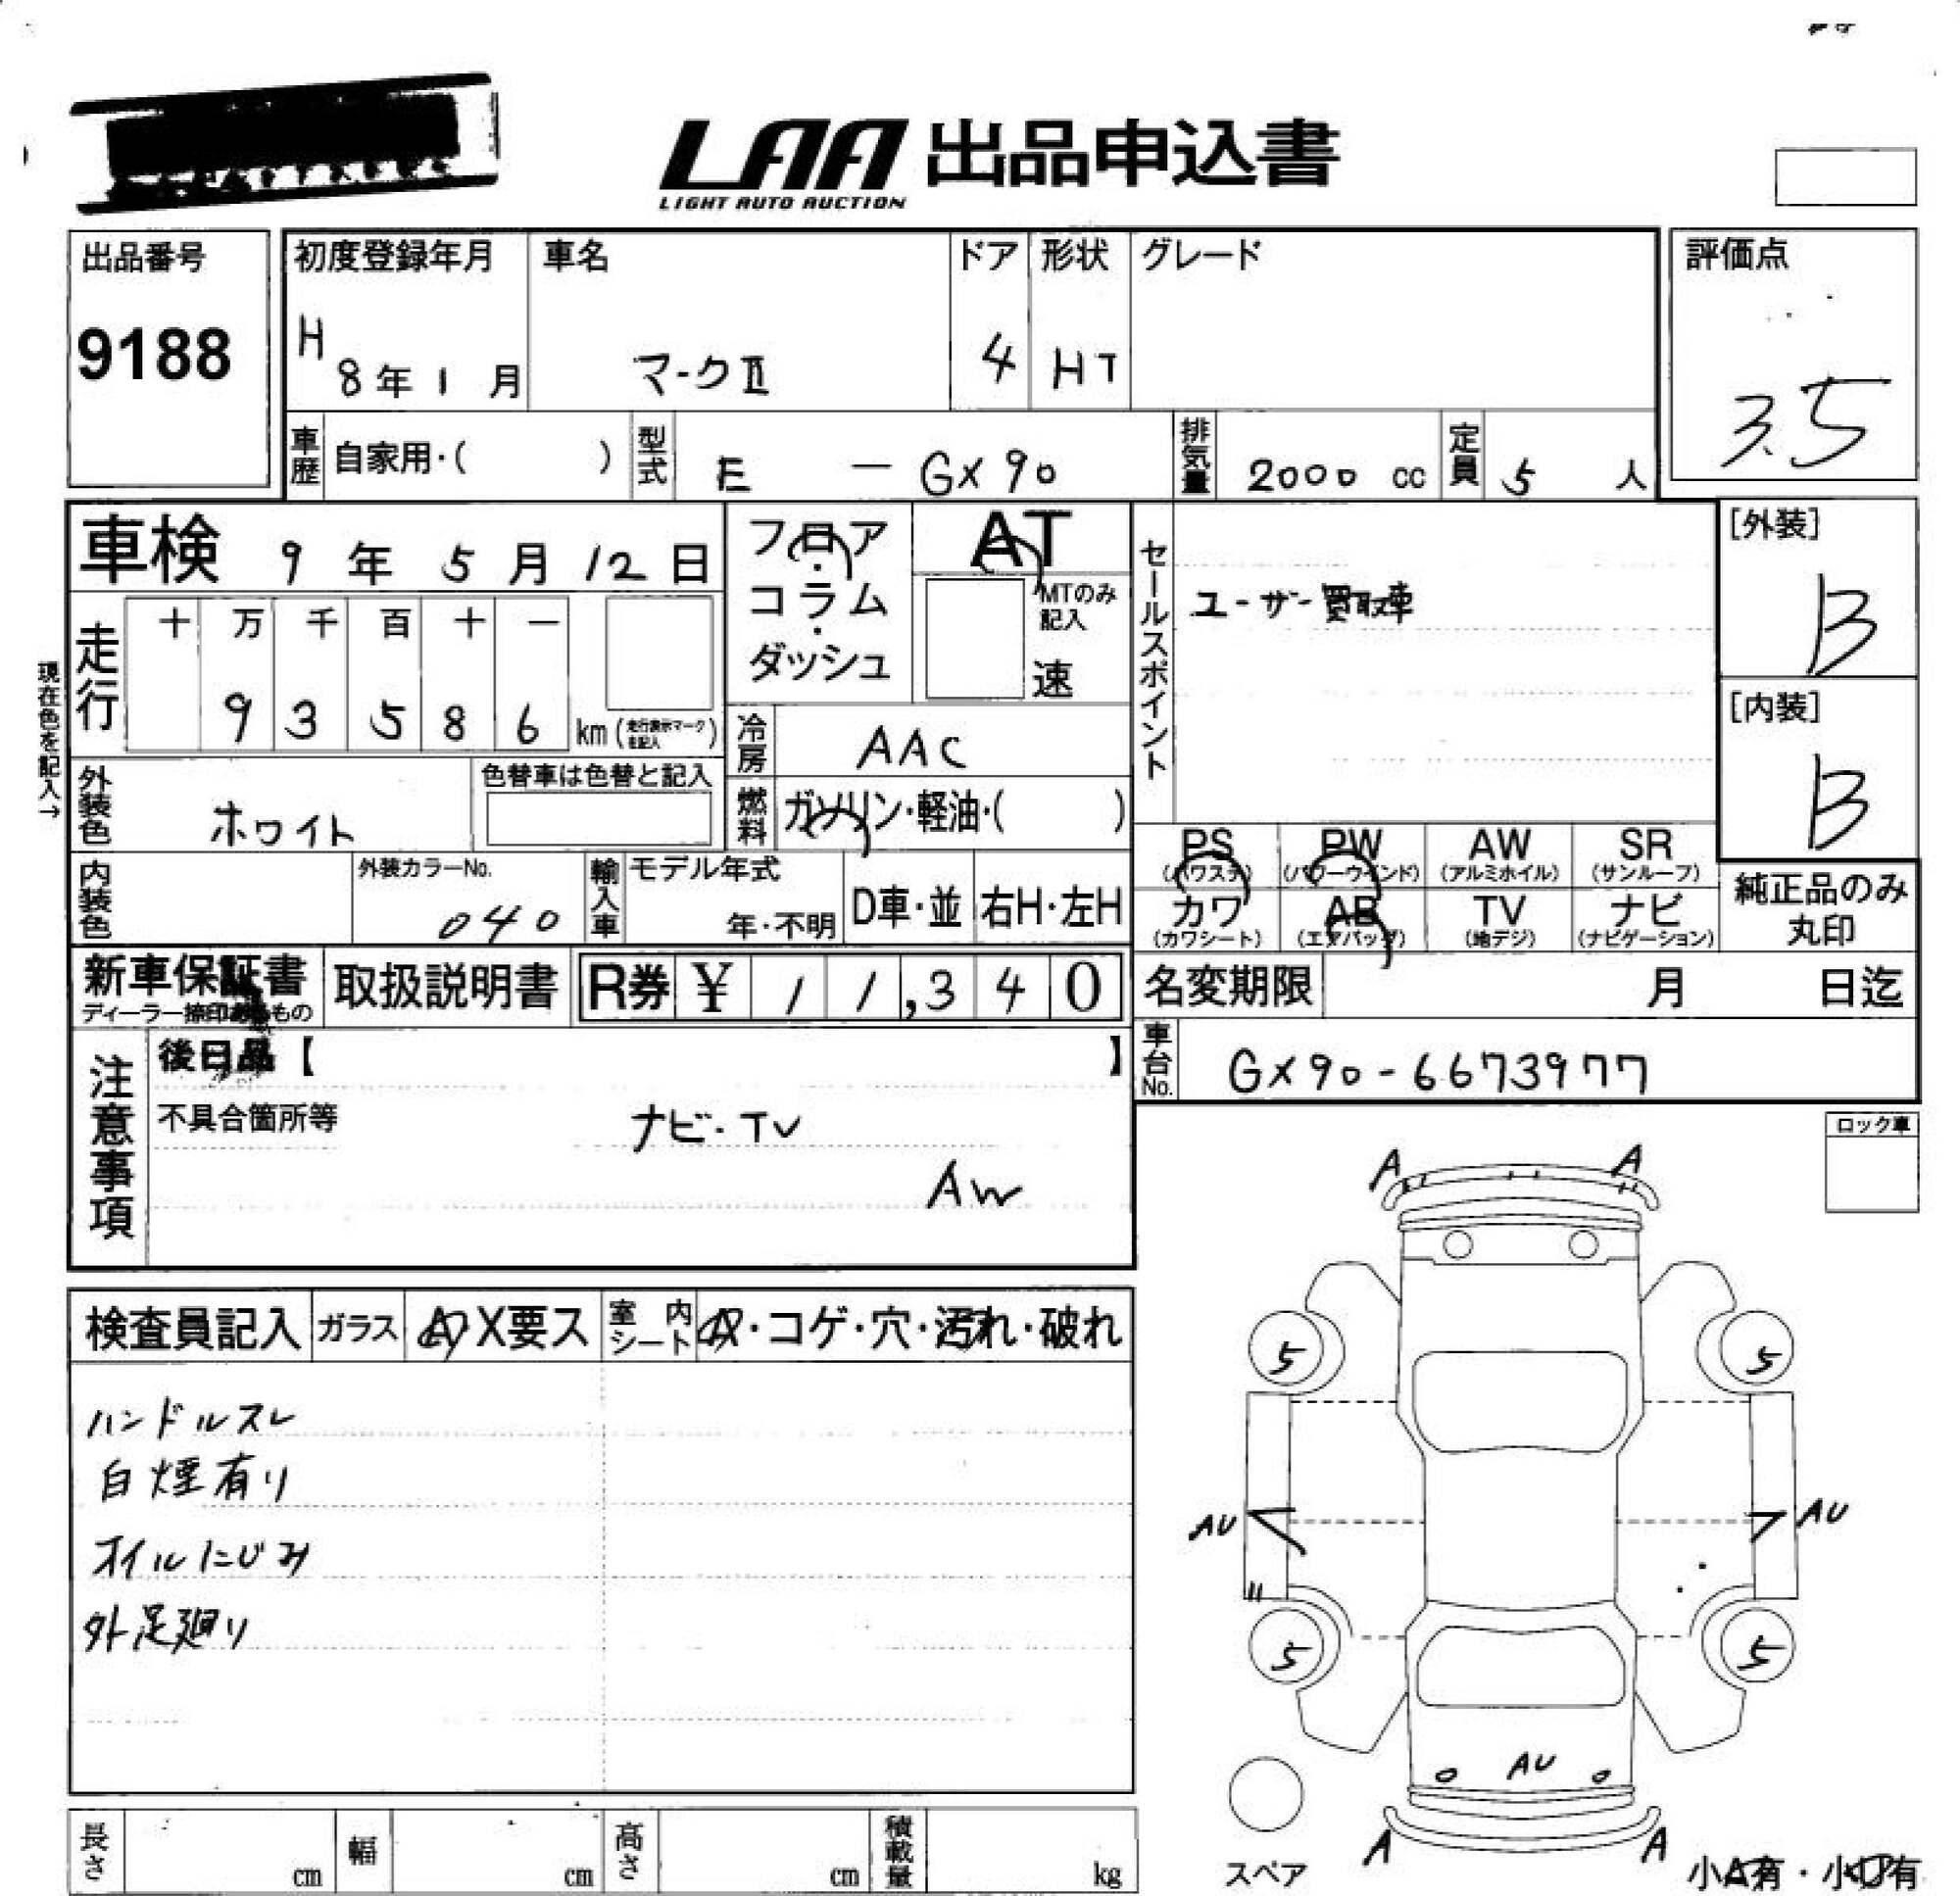 LAA 出品申込書
LIGHT AUTO AUCTION
出品番号
9188
初度登録年月
H 8年 1 月
車名
マークⅡ
ドア
4
形状
HT
グレード
評価点
3.5
車歴 自家用・( )
型式 E — GX90
排気量 2000 cc
定員 5 人
車検 9 年 5 月 12 日
走行
十 万 千 百 十 一
9 3 5 8 6 km (走行表示マークを記入)
現在色を記入→
フロア・コラム・ダッシュ
AT
MTのみ記入
速
冷房 AAC
燃料 ガソリン・軽油・( )
セールスポイント
ユーザー買取車
[外装]
B
[内装]
B
外装色 ホワイト
色替車は色替と記入
内装色
外装カラーNo.
040
輸入車
モデル年式
年・不明
D車・並
右H・左H
PS (パワステ)
PW (パワーウインド)
AW (アルミホイル)
SR (サンルーフ)
カワ (カワシート)
AB (エアバッグ)
TV (地デジ)
ナビ (ナビゲーション)
純正品のみ丸印
新車保証書
ディーラー捺印あるもの
取扱説明書
R券 ¥ 1 1,3 4 0
名変期限 月 日迄
車台No. GX90-6673977
注意事項
後日品【 】
不具合箇所等
ナビ・TV
AW
ロック車
検査員記入
ガラス A・X要ス
室内シート A・コゲ・穴・汚れ・破れ
ハンドルスレ
白煙有り
オイルにじみ
外足廻り
A A
5 5
AU AU
5 5
AU
A A
スペア
小A有・小U有
長さ cm
幅 cm
高さ cm
積載量 kg